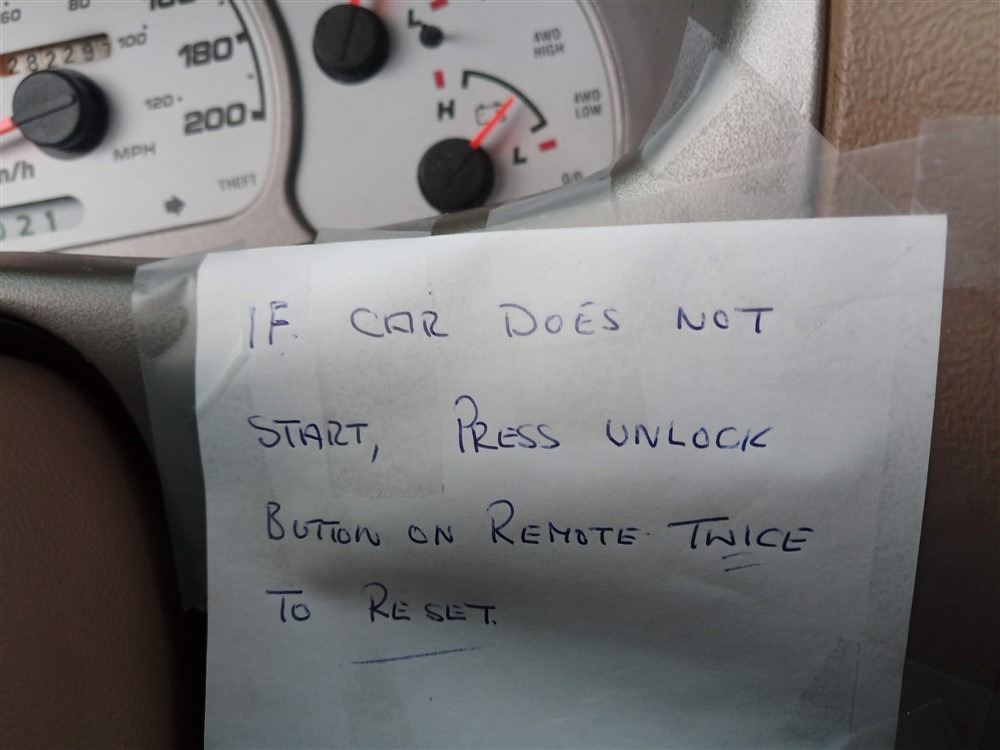 60 80
282299 100
180
120
200
MPH
m/h
THEFT
021
L
4WD
HIGH
H
4WD
LOW
L
O/D
IF CAR DOES NOT
START, PRESS UNLOCK
BUTTON ON REMOTE TWICE
TO RESET.